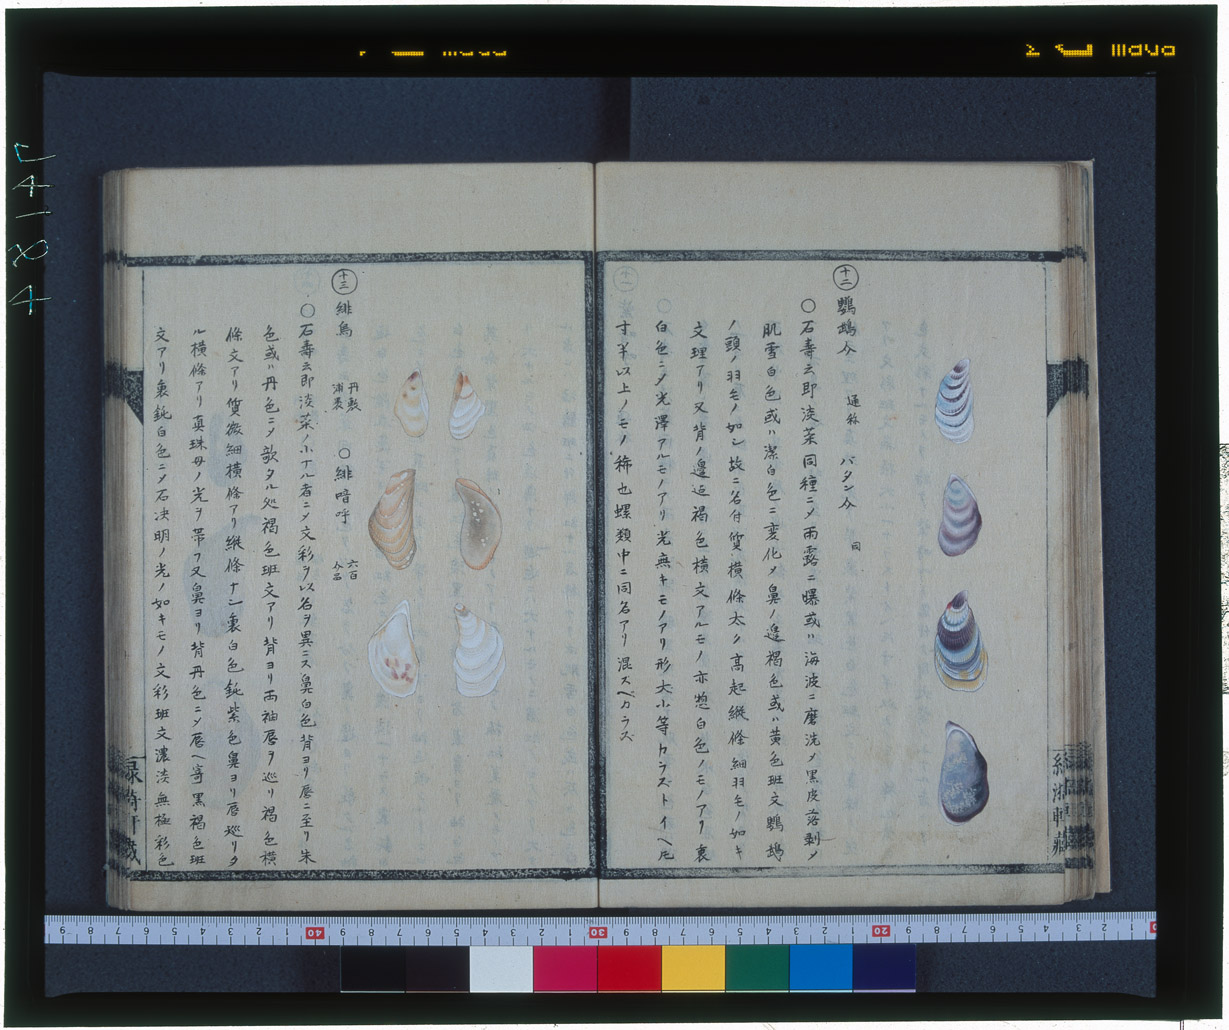 十二 鸚鵡介 通称 バタン介 同
○石壽云即淡菜同種ニメ雨露ニ曝或ハ海波ニ磨洗メ黒皮落剥メ
肌雪白色或ハ潔白色ニ変化メ鼻ノ邊褐色或ハ黄色班文鸚鵡
ノ頭ノ羽毛ノ如シ故ニ名付質横條太ク高起縱條細羽毛ノ如キ
文理アリ又背ノ邊返褐色横文アルモノ亦惣白色ノモノアリ裏
白色ニメ光澤アルモノアリ光無キモノアリ形大小等カラストイヘ𪜈
寸半以上ノモノ稀也螺類中ニ同名アリ混スベカラズ
十三 緋鳥 丹敷浦裏 ○緋喑呼 六百介品
○石壽云即淡菜ノ小ナル者ニメ文彩ヲ以名ヲ異ニス鼻白色背ヨリ唇ニ至リ朱
色或ハ丹色ニメ歇タル処褐色班文アリ背ヨリ両袖唇ヲ巡リ褐色横
條文アリ質微細横條アリ縱條ナシ裏白色鈍紫色鼻ヨリ唇巡リタ
ル横條アリ真珠母ノ光ヲ帯フ又鼻ヨリ背丹色ニメ唇ヘ寄黒褐色班
文アリ裏鈍白色ニメ石决明ノ光ノ如キモノ文彩班文濃淡無極彩色
軒藏
4814